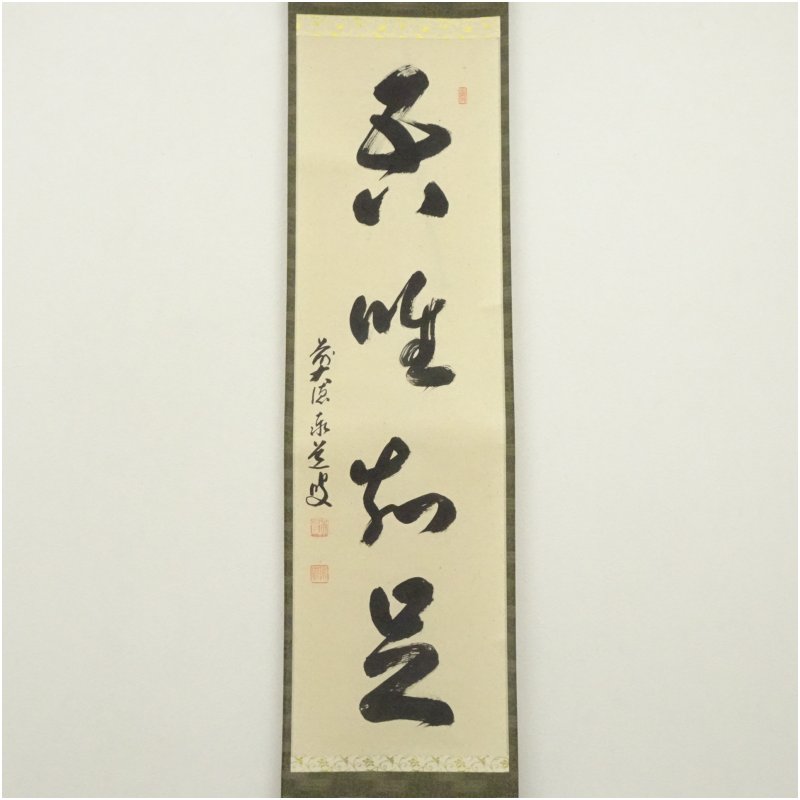 吾唯知足
前大徳泰道叟